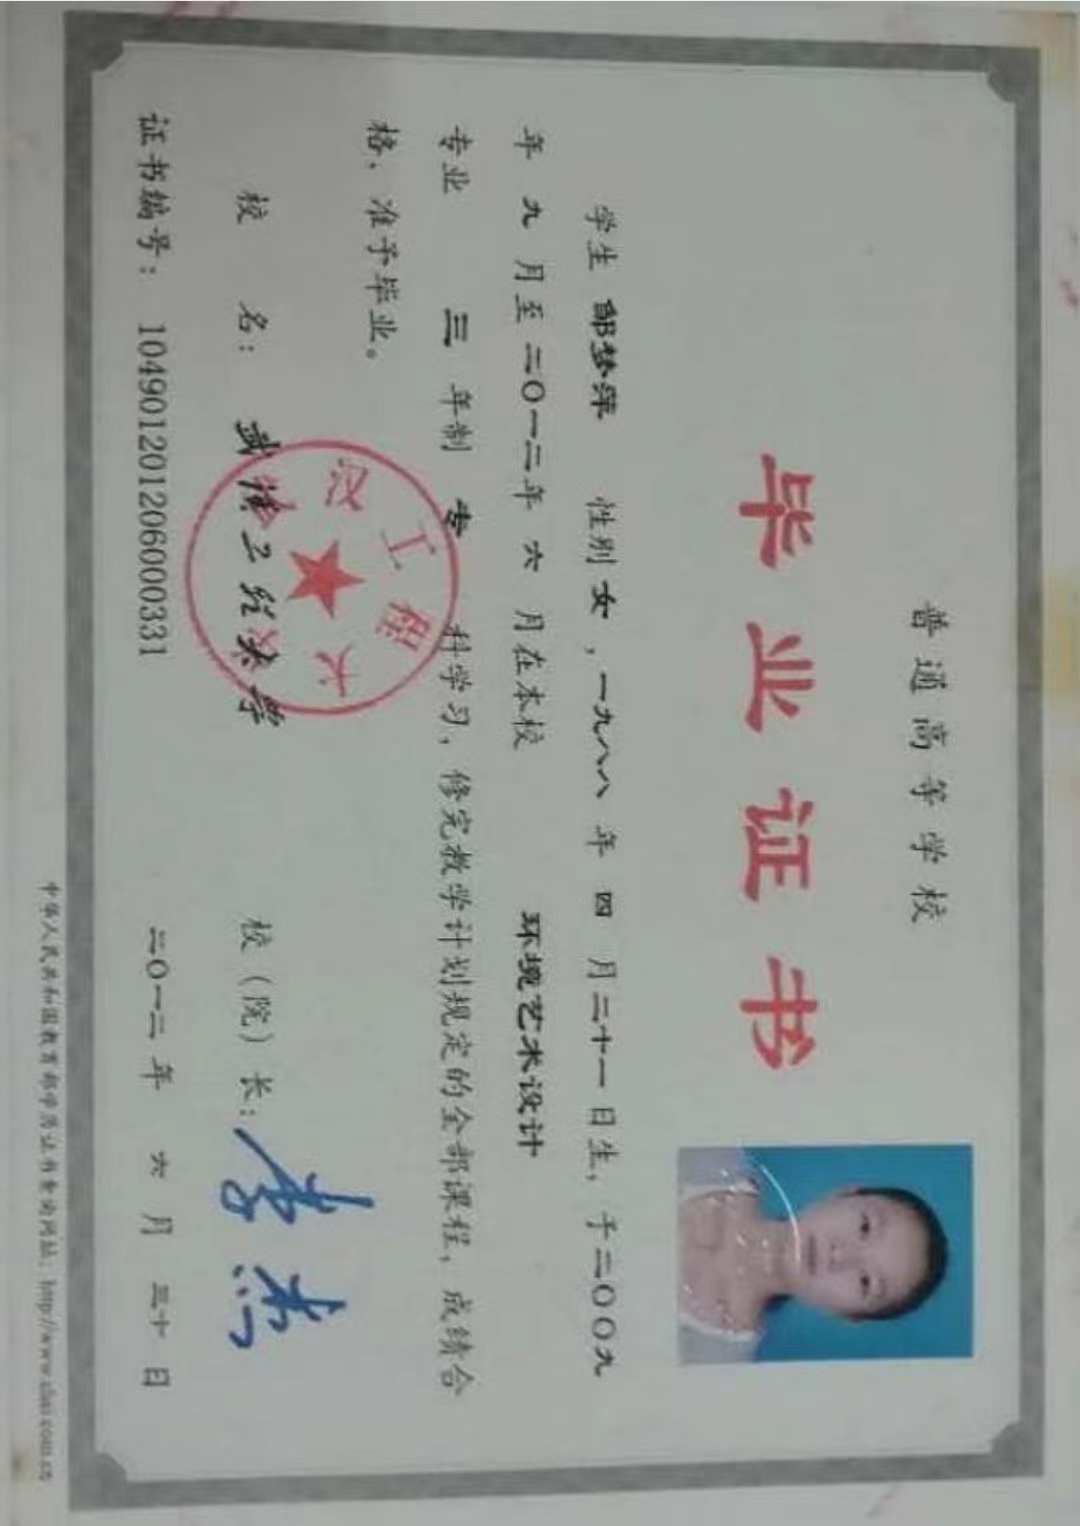 普通高等学校
毕业证书
学生 邹梦萍 性别 女，一九八八 年 四 月二十一日生，于二〇〇九
年 九 月至二〇一二年 六 月在本校 环境艺术设计
专业 三 年制 专 科学习，修完教学计划规定的全部课程，成绩合
格，准予毕业。
校 名： 武汉工程大学 校（院）长：李杰
证书编号： 104901201206000331 二〇一二 年 六 月 三十 日
武汉工程大学
中华人民共和国教育部学历证书查询网址：http://www.chsi.com.cn